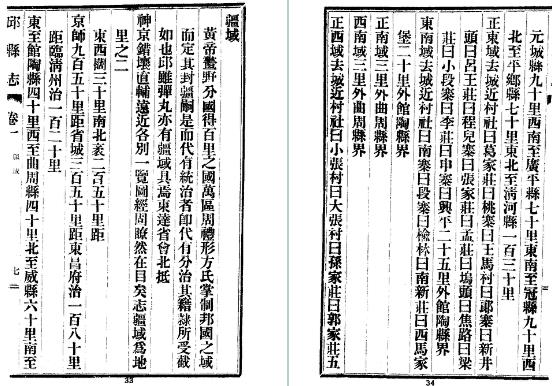 疆域
黃帝畫野分國得百里之國萬區周禮形方氏掌制邦國之域
而定其封疆嗣是而代有統治者卽代有分治其籍隸所受截
如也邱雖彈丸亦有疆域具焉東達省會北抵
神京錯壤直輔遠近各別一覽圖經周瞭然在目矣志疆域爲地
里之二
東西闊三十里南北袤二百五十里距
京師九百五十里距省城三百五十里距東昌府治一百八十里
距臨淸州治一百二十里
東至館陶縣四十里西至曲周縣四十里北至威縣六十里南至
邱縣志
卷一
疆域
七
33
元城縣九十里西南至廣平縣七十里東南至冠縣九十里西
北至平鄉縣七十里東北至淸河縣一百三十里
正東域去城近村社曰葛家莊曰桃寨曰王馬村曰鄴寨曰新井
頭曰呂王莊曰程兒寨曰張家莊曰孟莊曰塢頭曰焦路曰梁
莊曰小段寨曰李莊曰申寨曰興平二十五里外館陶縣界
東南域去城近村社曰南寨曰段寨曰楡林曰南新莊曰西馬家
堡二十里外館陶縣界
正南域三里外曲周縣界
西南域三里外曲周縣界
正西域去城近村社曰小張村曰大張村曰孫家莊曰郭家莊五
34